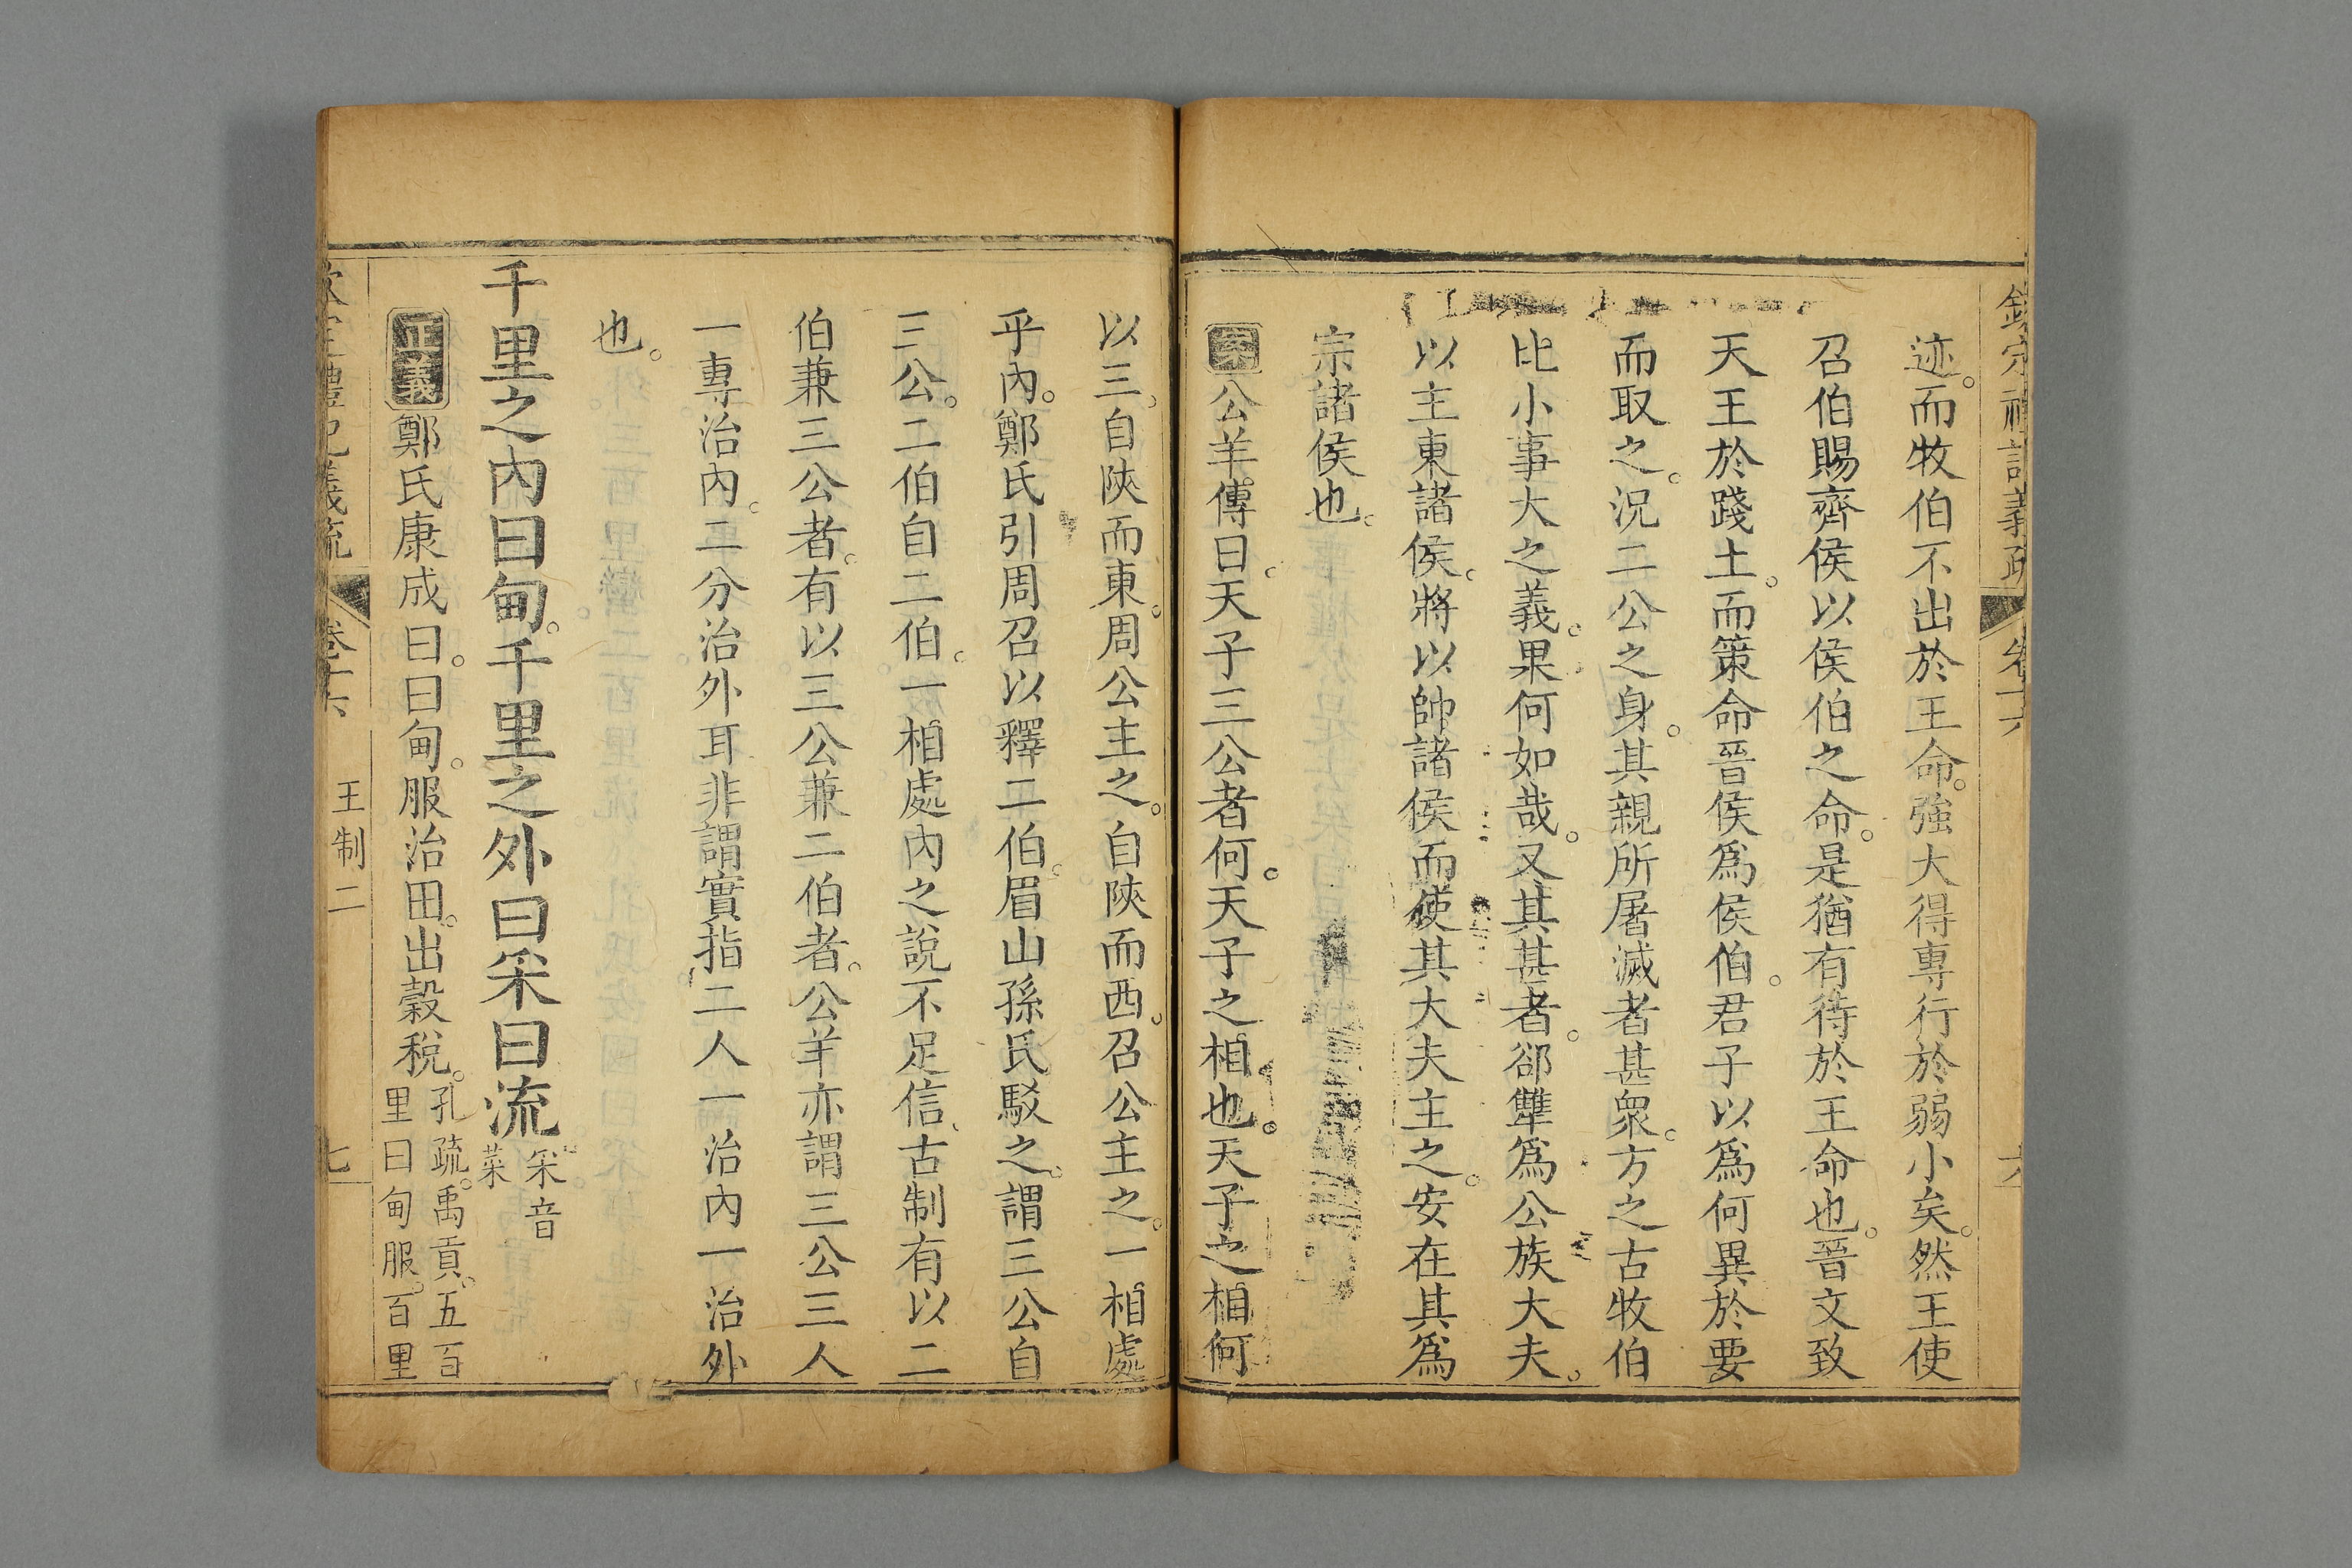 欽定禮記義疏 卷十六 六
迹。而牧伯不出於王命。強大得專行於弱小矣。然王使
召伯賜齊侯以侯伯之命。是猶有待於王命也。晉文致
天王於踐土。而策命晉侯爲侯伯。君子以爲何異於要
而取之。況二公之身。其親所屠滅者甚衆。方之古牧伯
比小事大之義。果何如哉。又其甚者。郤犨爲公族大夫。
以主東諸侯。將以帥諸侯而使其大夫主之。安在其爲
宗諸侯也。
公羊傳曰。天子三公者何。天子之相也。天子之相何
以三。自陜而東。周公主之。自陜而西。召公主之。一相處
乎內。鄭氏引周召以釋二伯。眉山孫氏駁之。謂三公自
三公。二伯自二伯。一相處內之說不足信。古制有以二
伯兼三公者。有以三公兼二伯者。公羊亦謂三公三人
一專治內。二分治外耳非謂實指二人一治內一治外
也。
千里之內曰甸。千里之外曰采曰流。采音
菜
正義 鄭氏康成曰。曰甸。服治田。出穀稅。孔疏。禹貢。五百
里曰甸服。百里
欽定禮記義疏 卷十六 王制二 七